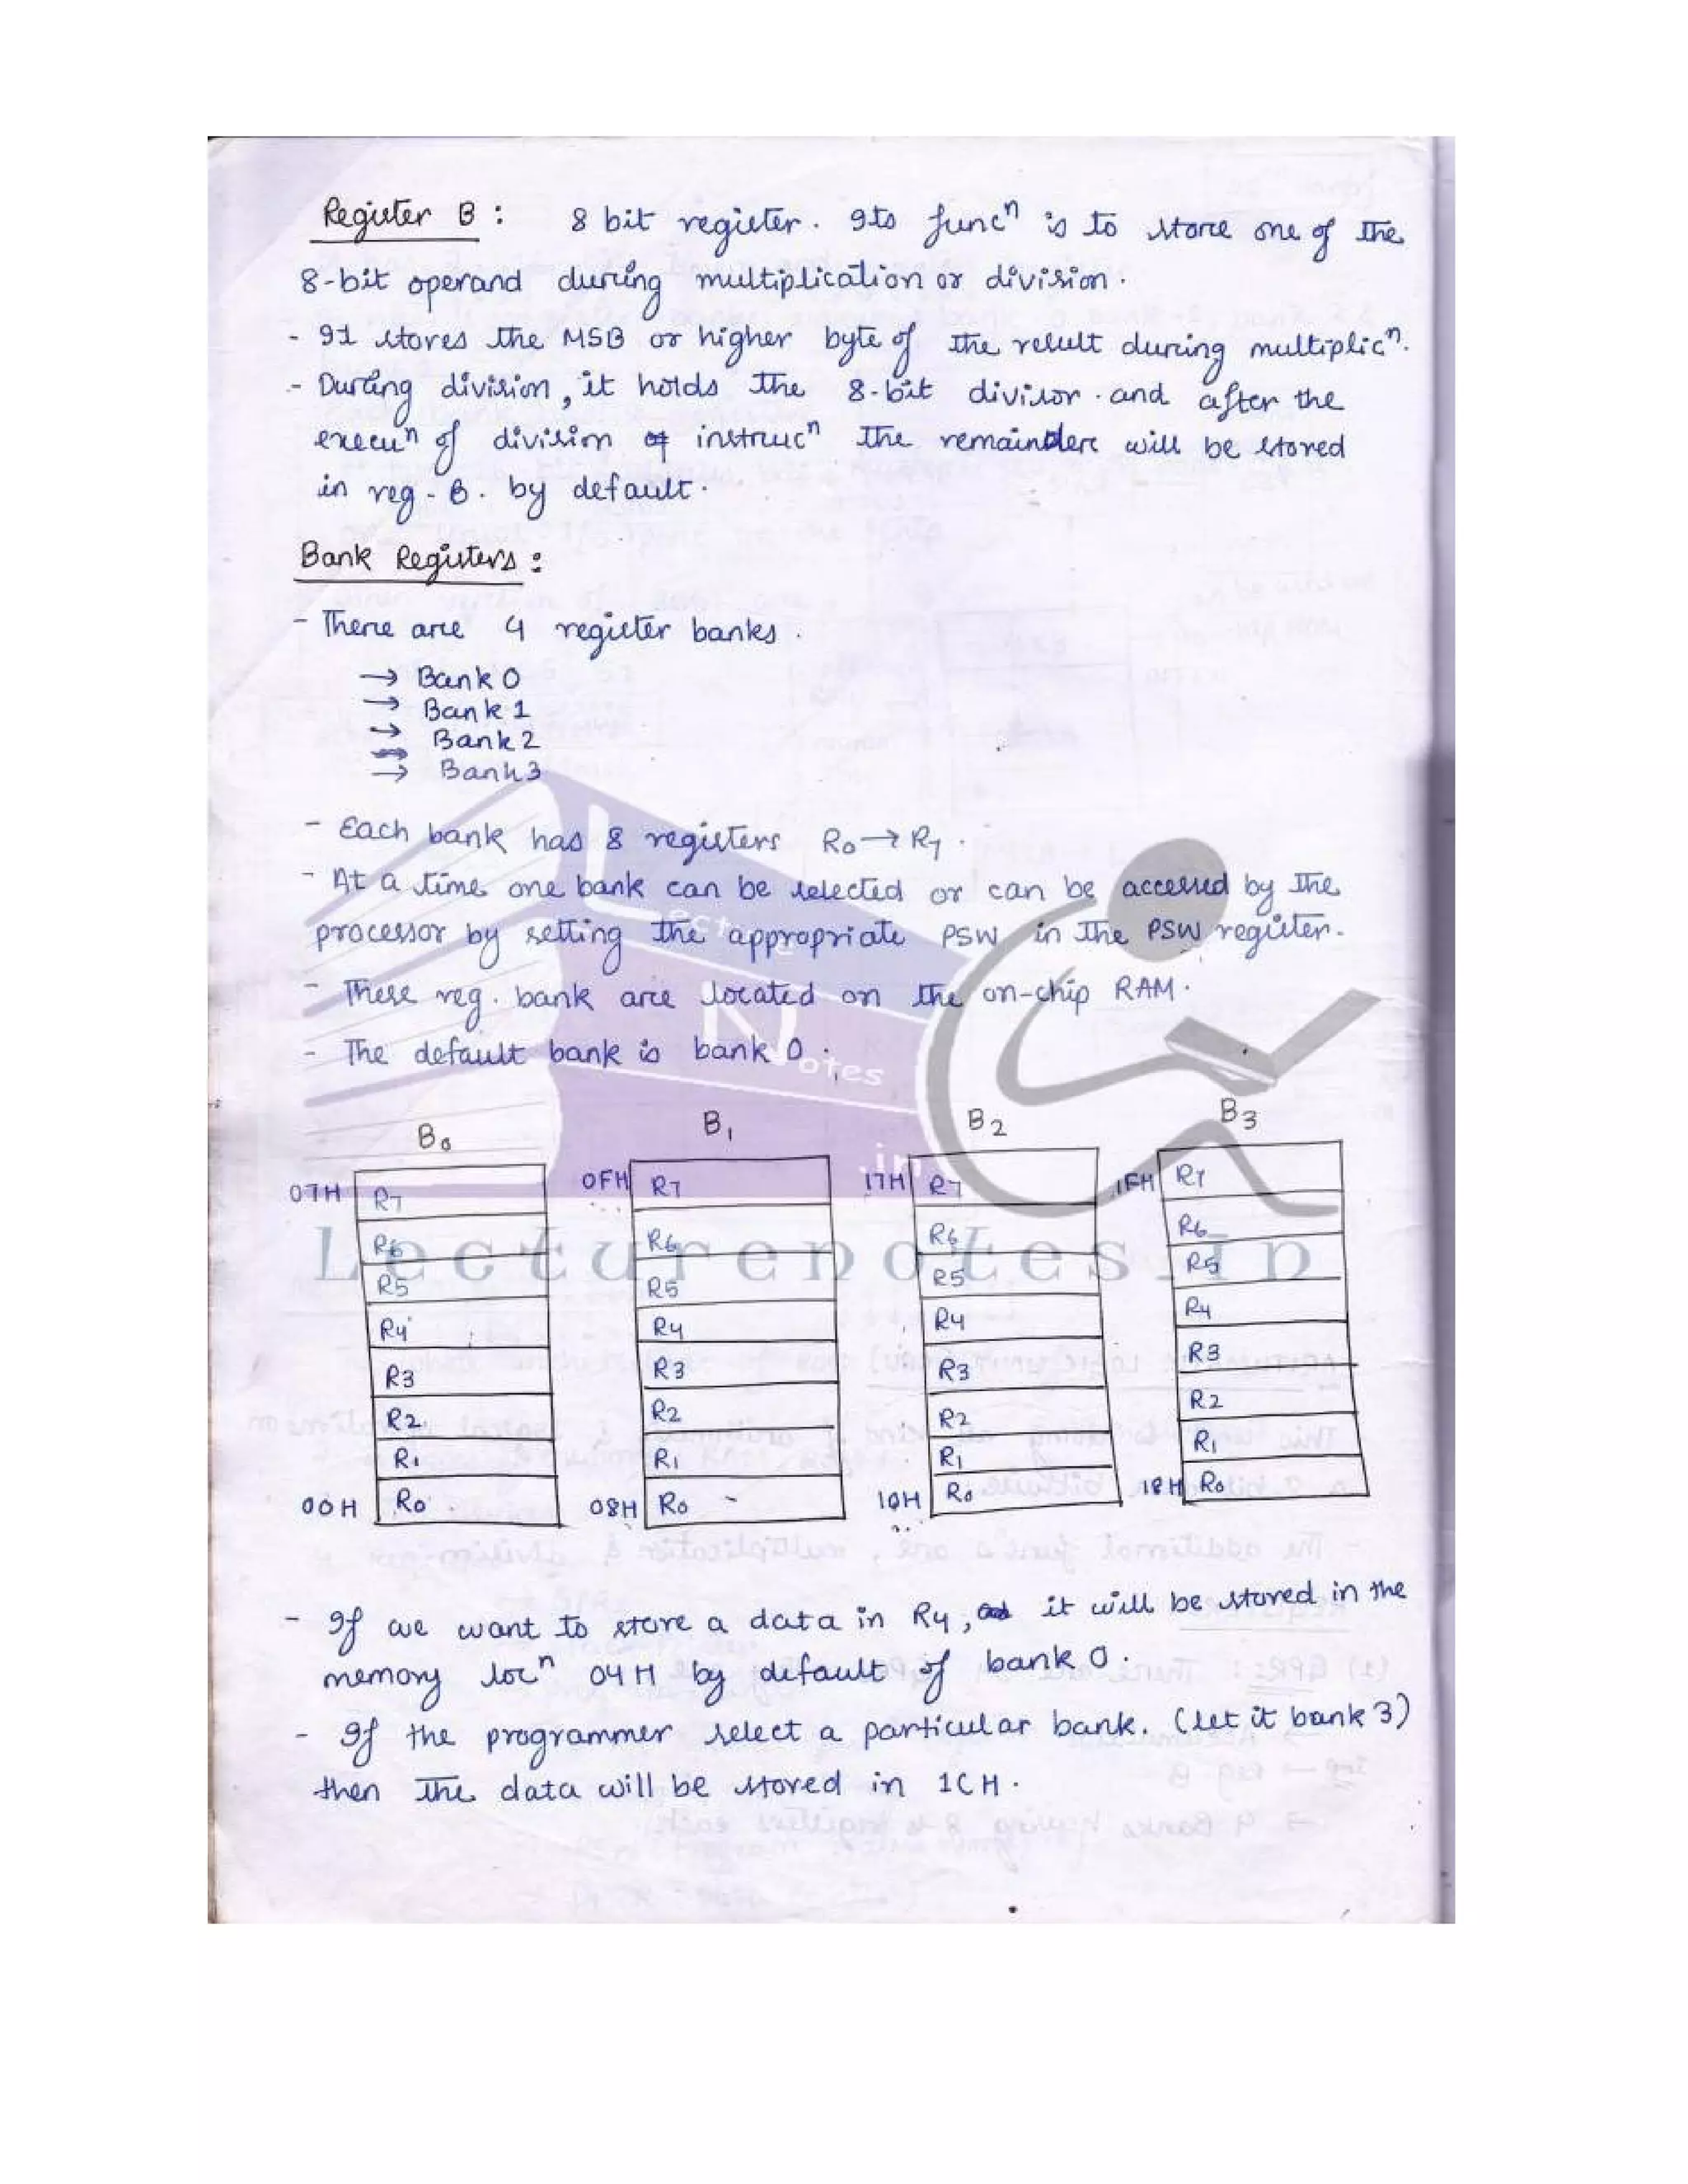 Register B : 8 bit register. Its funcⁿ is to store one of the
8-bit operand during multiplication or division.
- It stores the MSB or higher byte of the result during multiplicⁿ.
- During division, it holds the 8-bit divisor. and after the
execuⁿ of division instrucⁿ the remainder will be stored
in reg-B. by default.
Bank Registers :
- There are 4 register banks.
→ Bank 0
→ Bank 1
→ Bank 2
→ Bank 3
- Each bank has 8 registers R0 → R7.
- At a time one bank can be selected or can be accessed by the
processor by setting the appropriate PSW in the PSW register.
- These reg. bank are located on the on-chip RAM.
- The default bank is bank 0.
Lecture
Notes
.in
B0 B1 B2 B3
07H R7 0FH R7 17H R7 1FH R7
R6 R6 R6 R6
Lecturenotes.in
R5 R5 R5 R5
R4 R4 R4 R4
R3 R3 R3 R3
R2 R2 R2 R2
R1 R1 R1 R1
00H R0 08H R0 10H R0 18H R0
- If we want to store a data in R4, it will be stored in the
memory locⁿ 04H by default of bank 0.
- If the programmer select a particular bank. (let it bank 3)
then the data will be stored in 1CH.